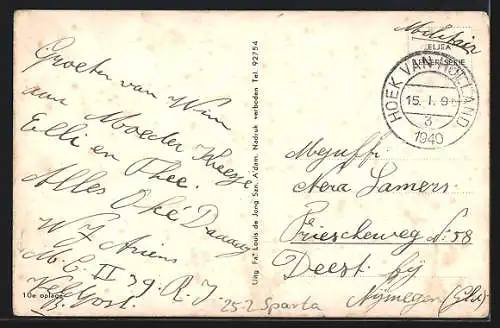 Groeten van Wim
aan Moeder Keesje
Elli en Thee.
Alles Oké Daaag
W J Ariens
M.C. II 39. R. J.
Veldpost.
10e oplage
Uitg. Fa. Louis de Jong Szn. A'dam. Nadruk verboden Tel. 92754
Militair
HOEK VAN HOLLAND
15. I. 9
3
1940
Mejuffr.
Nera Lamers.
Driescheweg No 58
Deest. bij
Nijmegen (Gld.)
252 Sparta